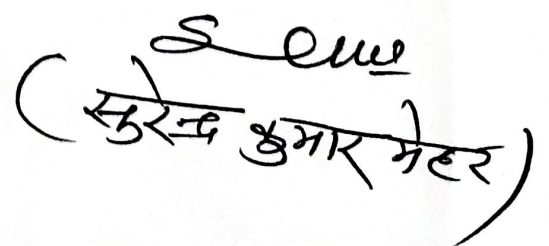 (सुरेन्द्र कुमार मेहर)